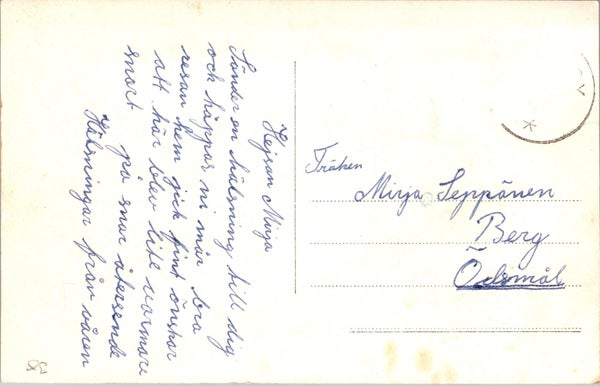 Hejsan Mirja
Sänder en hälsning till dig
och hoppas ni mår bra
resan hem gick fint önskar
att här blev lite varmare
snart
på snar återseende
Hälsningar från
Fröken
Mirja Seppänen
Berg
Ödsmål